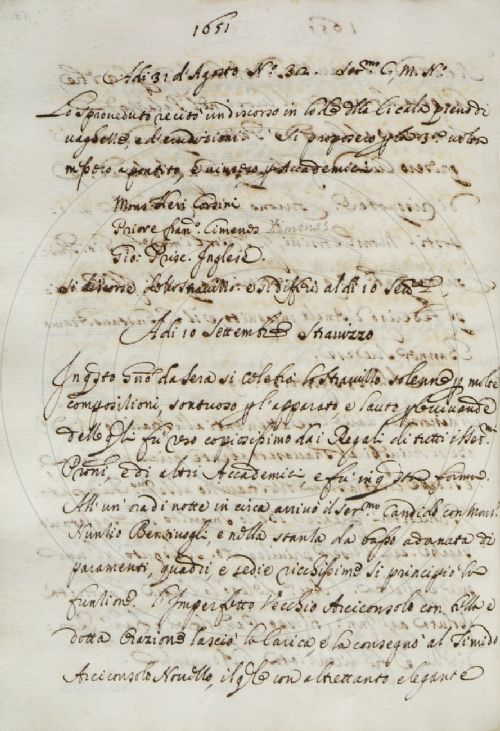 1651
Adi 31 d'Agosto N.º 32. Ser.mo G. M. N.º
Lo Sproveduto recitò un discorso in lode della Cicala pieno di
vaghezze, e d'erudizioni. Si proposero p la 3.ª volta
messero a partito, e vinsero p Accademici
Mons. Neri Corsini
Priore fran.º Cimenes Ximenes
Gio: Rusc. Inglese
Si discorse lo stravizzo e si differì al dì 10 Sett.re
Adi 10 Settembre Stravizzo
In q.sto giorno da sera si celebrò lo Stravizzo solenne p molte
composizioni, sontuoso p l'apparato e lauto p le vivande
delle q.li fu reso copiosissimo dai Regali di tutti i Ser.mi
Pröni, e di altri Accademici, e fu in q.sta forma.
All'un'ora di notte in circa arrivò il Ser.mo Candido con Mons.r
Nunzio Bentivogli, e nella stanza da basso adornata di
paramenti, quadri e sedie ricchissime si principiò la
funzione. L'Imperfetto Vecchio Arciconsolo con bella e
dotta Orazione lasciò la carica e la consegnò al Timido
Arciconsolo Novello, il q.le con altrettanto elegante